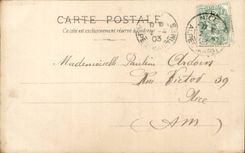 CARTE POSTALE
Ce côté est exclusivement réservé à l'adresse
NICE
03
Mademoiselle Pauline Ardoin
Rue Victor 39
Nice
(A M)